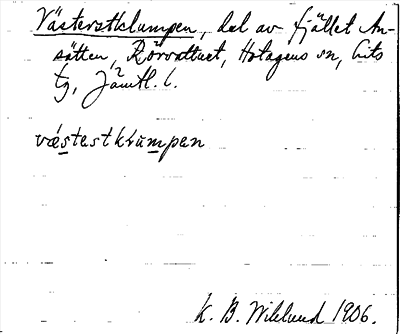 Västerstklumpen, del av fjället An-
sätten, Rörvattnet, Hotagens sn, Lits
tg, Jämtl. l.
västestkrumpen
K. B. Wiklund 1906.